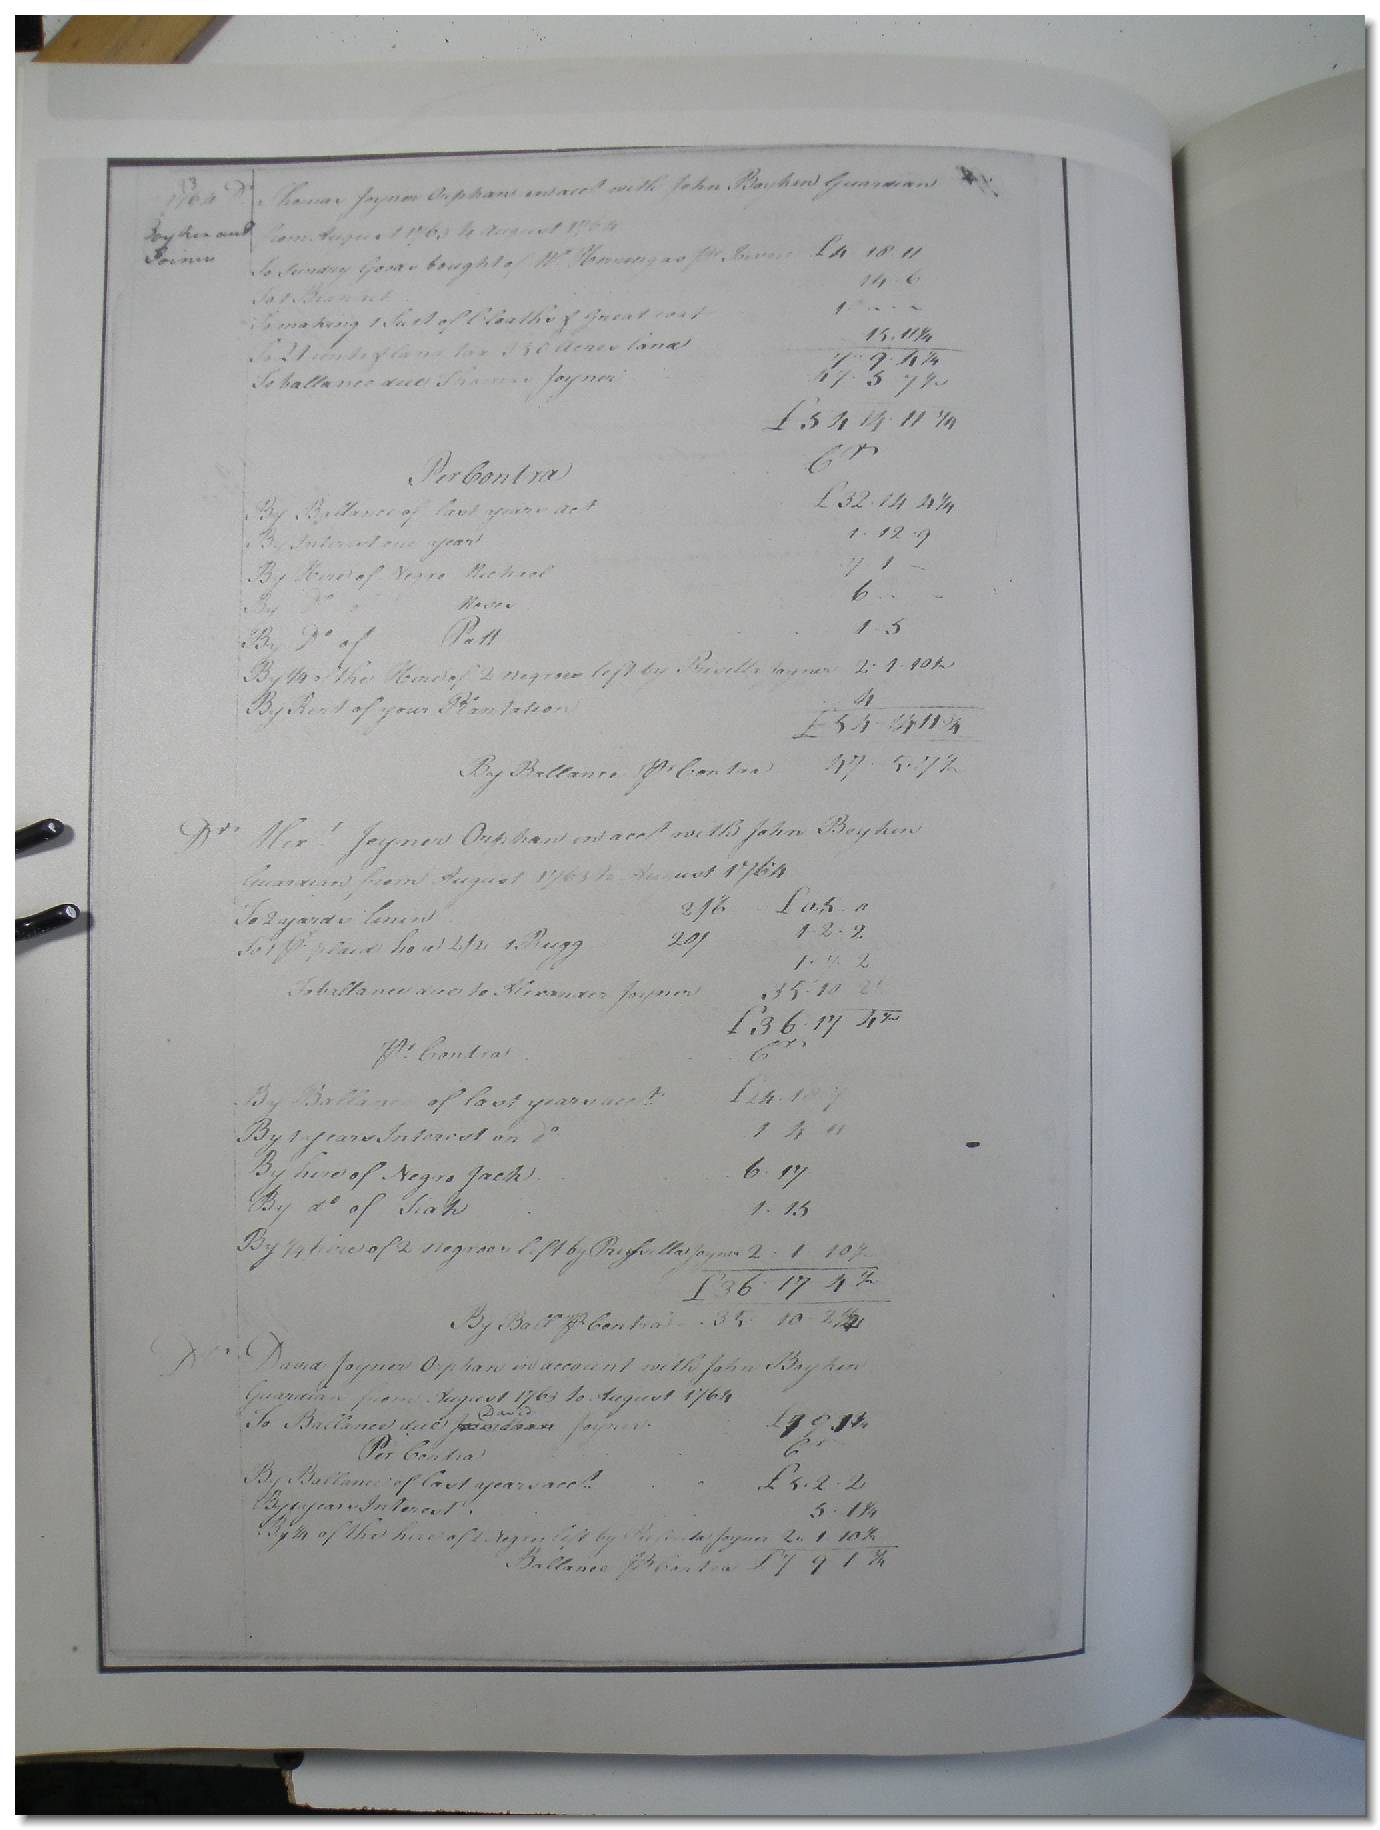 1764 Dr Thomas Joyner Orphan in acct with John Boykin Guardian
Boykin and from August 1763 to August 1764
Joiner
To Sundry Goods bought of £4 18 11
To 1 14 6
To making 1 Suit of Cloaths & Great coat 1 - -
To land tax 350 Acres land 15.11¼
7 9 4¼
To ballance due Thomas Joyner 47 5 7½
£54 14 11¾
Per Contra Cr
By Ballance of last years act £32.14 4¼
By Interest one year 1.12.9
By Hire of Negro Micheel 7 1 -
By Do of 6 - -
By Do of Patt 1.5
By ¼ of the Hire of 2 negroes left by Privilla Joyner 2.1.10½
By Rent of your Plantation 4
£54.14 11¾
By Ballance Pr Contra 47.5.7½
Dr. Alexr. Joyner Orphan in acct with John Boykin
Guardian from August 1763 to August 1764
To 2 yards linen 2/6 £0.5.0
To 1 pr plaid hose 2/2 1 Rugg 20/ 1.2.2
1.7.2
To ballance due to Alexander Joyner 35.10 2½
£36.17 4½
Pr. Contra Cr.
By Ballance of last years acct. £24.18 7
By 1 years Interest on do 1 4 11
By hire of Negro Jack 6.17
By do of 1.15
By ¼ hire of 2 negroes left by Prisvilla Joyner 2.1 10½
£36.17 4½
By Balle Pr Contra 35.10 2½
Dr. David Joyner Orphan in account with John Boykin
Guardian from August 1763 to August 1764
David
To Ballance due Joyner £7 9 1¾
Per Contra Cr
By Ballance of last years acct. £5.2.2
By 1 years Interest 5.1¼
By ¼ of the hire of 2 Negroes left by Joyner 2.1.10½
Ballance Pr Contra £7 9 1¾